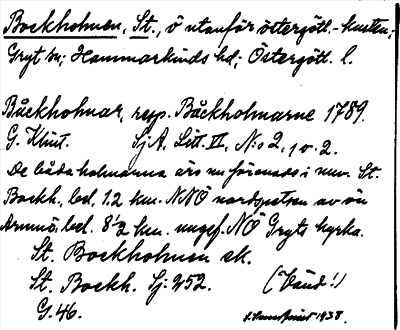 Bockholmen, St., ö utanför östergötl.-kusten;
Gryt sn; Hammarkinds hd; Östergötl. l.
Båckholmar, resp. Båckholmarne 1789.
G. Klint. SjA. Litt. VI, N:o 2, 1 o. 2.
De båda holmarna äro nu förenade i nuv. St.
Bockh., bel. 1.2 km. NNÖ nordspetsen av ön
Armnö, bel. 8 1/2 km. ungef. NÖ Gryts kyrka.
St. Bockholmen ek.
St. Bockh. Sj: 252. (Vänd!)
G. 46. 1938.